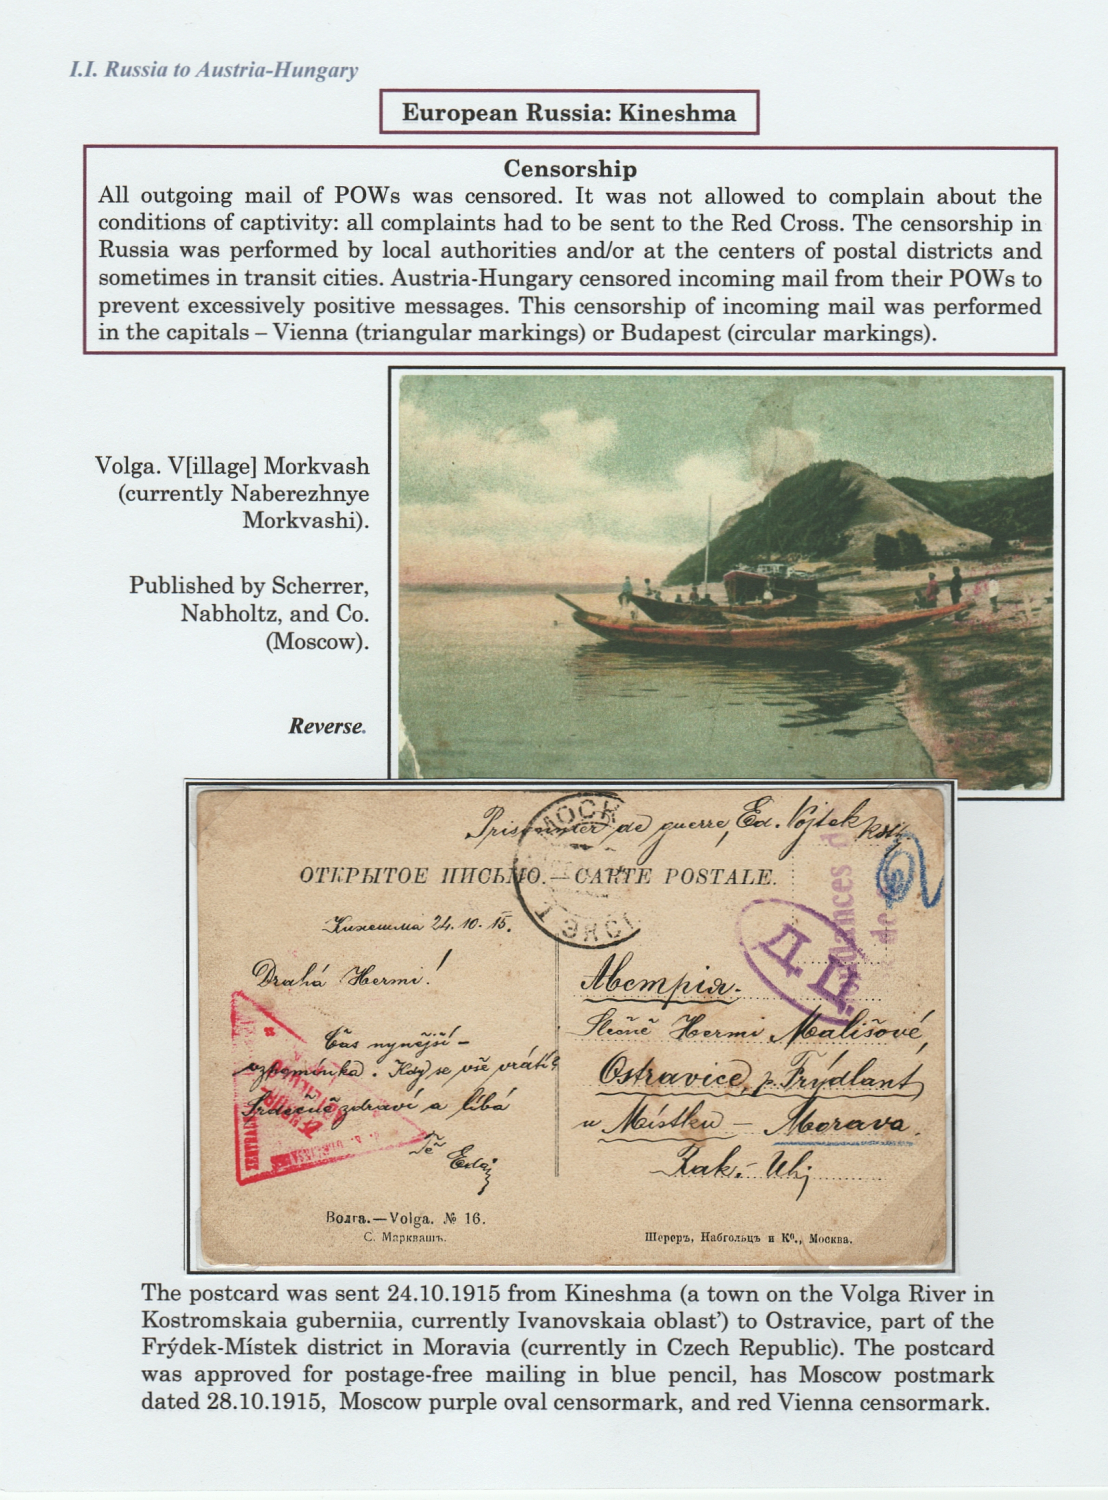 I.I. Russia to Austria-Hungary
European Russia: Kineshma
Censorship
All outgoing mail of POWs was censored. It was not allowed to complain about the
conditions of captivity: all complaints had to be sent to the Red Cross. The censorship in
Russia was performed by local authorities and/or at the centers of postal districts and
sometimes in transit cities. Austria-Hungary censored incoming mail from their POWs to
prevent excessively positive messages. This censorship of incoming mail was performed
in the capitals – Vienna (triangular markings) or Budapest (circular markings).
Volga. V[illage] Morkvash
(currently Naberezhnye
Morkvashi).
Published by Scherrer,
Nabholtz, and Co.
(Moscow).
Reverse.
Prisonnier de guerre, Ed. Vojtek
МОСК
ОТКРЫТОЕ ПИСЬМО.—CARTE POSTALE.
Кинешма 24.10.15.
Д.Ц.
Drahá Hermi!
Австрія.
Slečně Hermi Mališové,
Čas nynější –
vzpomínka. Kdy se vše vrátí?
Ostravice, p. Frýdlant
Srdečně zdraví a líbá
u Místku – Morava.
Tě
Eda
Rak. Uhj
Волга.—Volga. № 16.
С. Маркващъ.
Шереръ, Набгольцъ и Кº., Москва.
The postcard was sent 24.10.1915 from Kineshma (a town on the Volga River in
Kostromskaia guberniia, currently Ivanovskaia oblast’) to Ostravice, part of the
Frýdek-Místek district in Moravia (currently in Czech Republic). The postcard
was approved for postage-free mailing in blue pencil, has Moscow postmark
dated 28.10.1915, Moscow purple oval censormark, and red Vienna censormark.